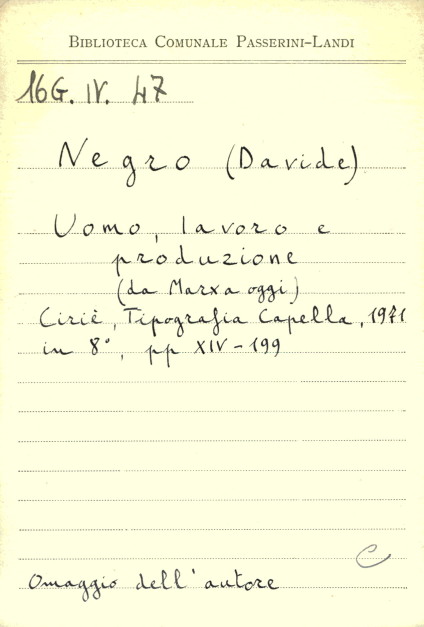 BIBLIOTECA COMUNALE PASSERINI-LANDI
16G. IV. 47
Negro (Davide)
Uomo, lavoro e
produzione
(da Marx a oggi)
Ciriè, Tipografia Capella, 1971
in 8°, pp XIV-199
C
Omaggio dell'autore